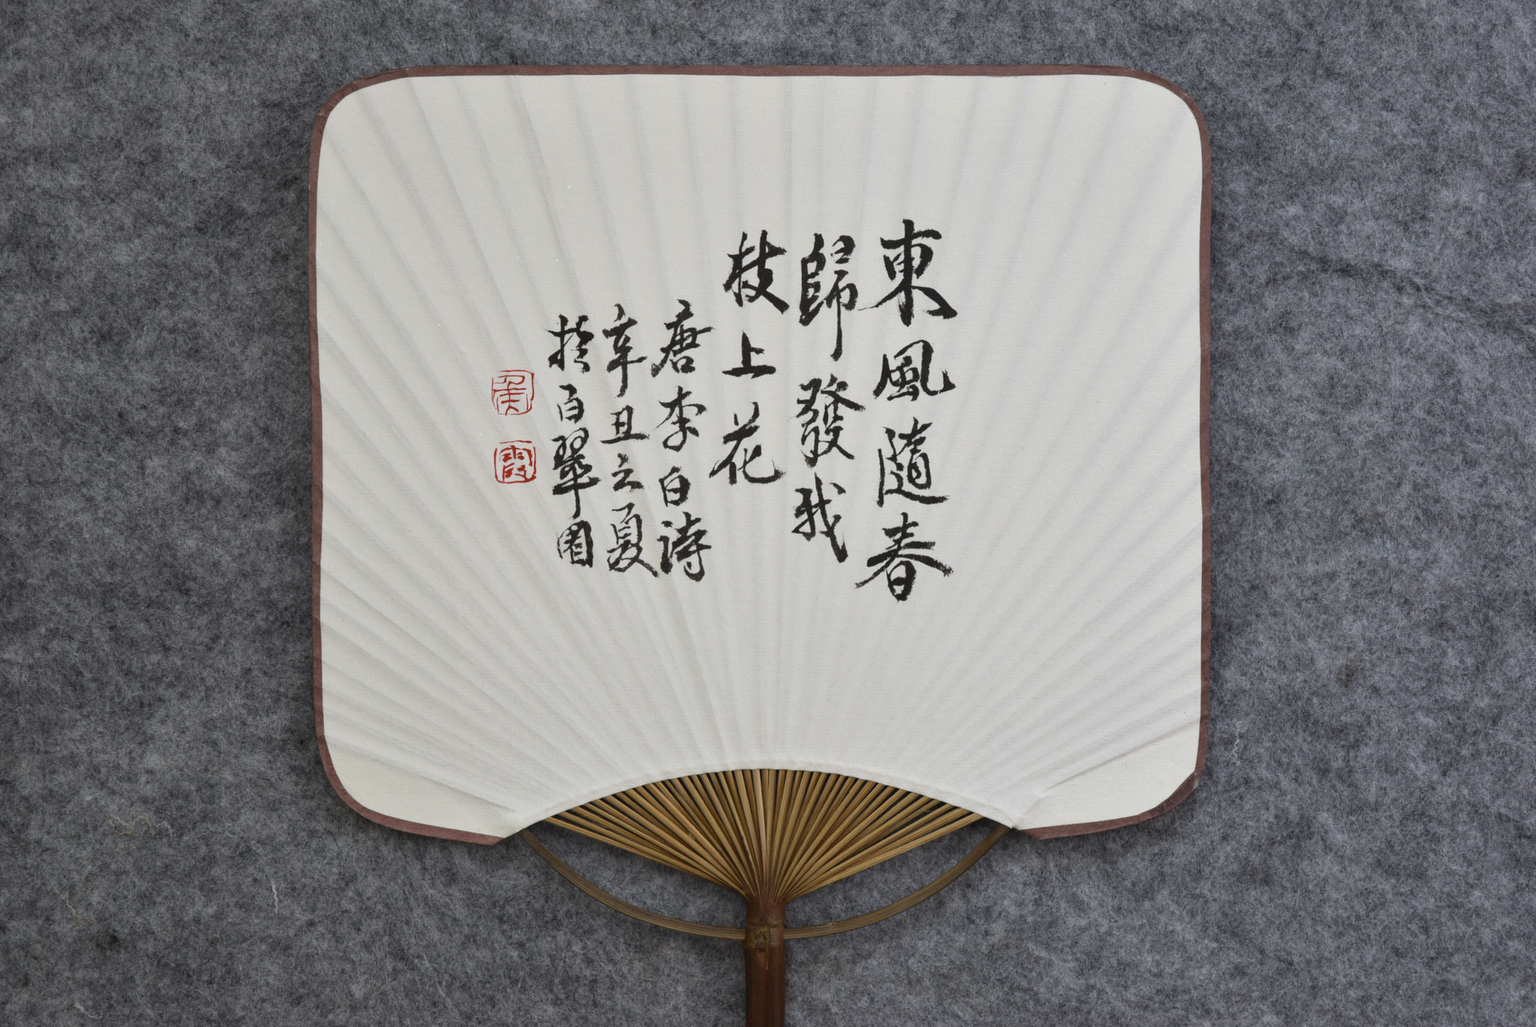 東風隨春
歸發我
枝上花
唐李白詩
辛丑之夏
於百翠園
侯
霞